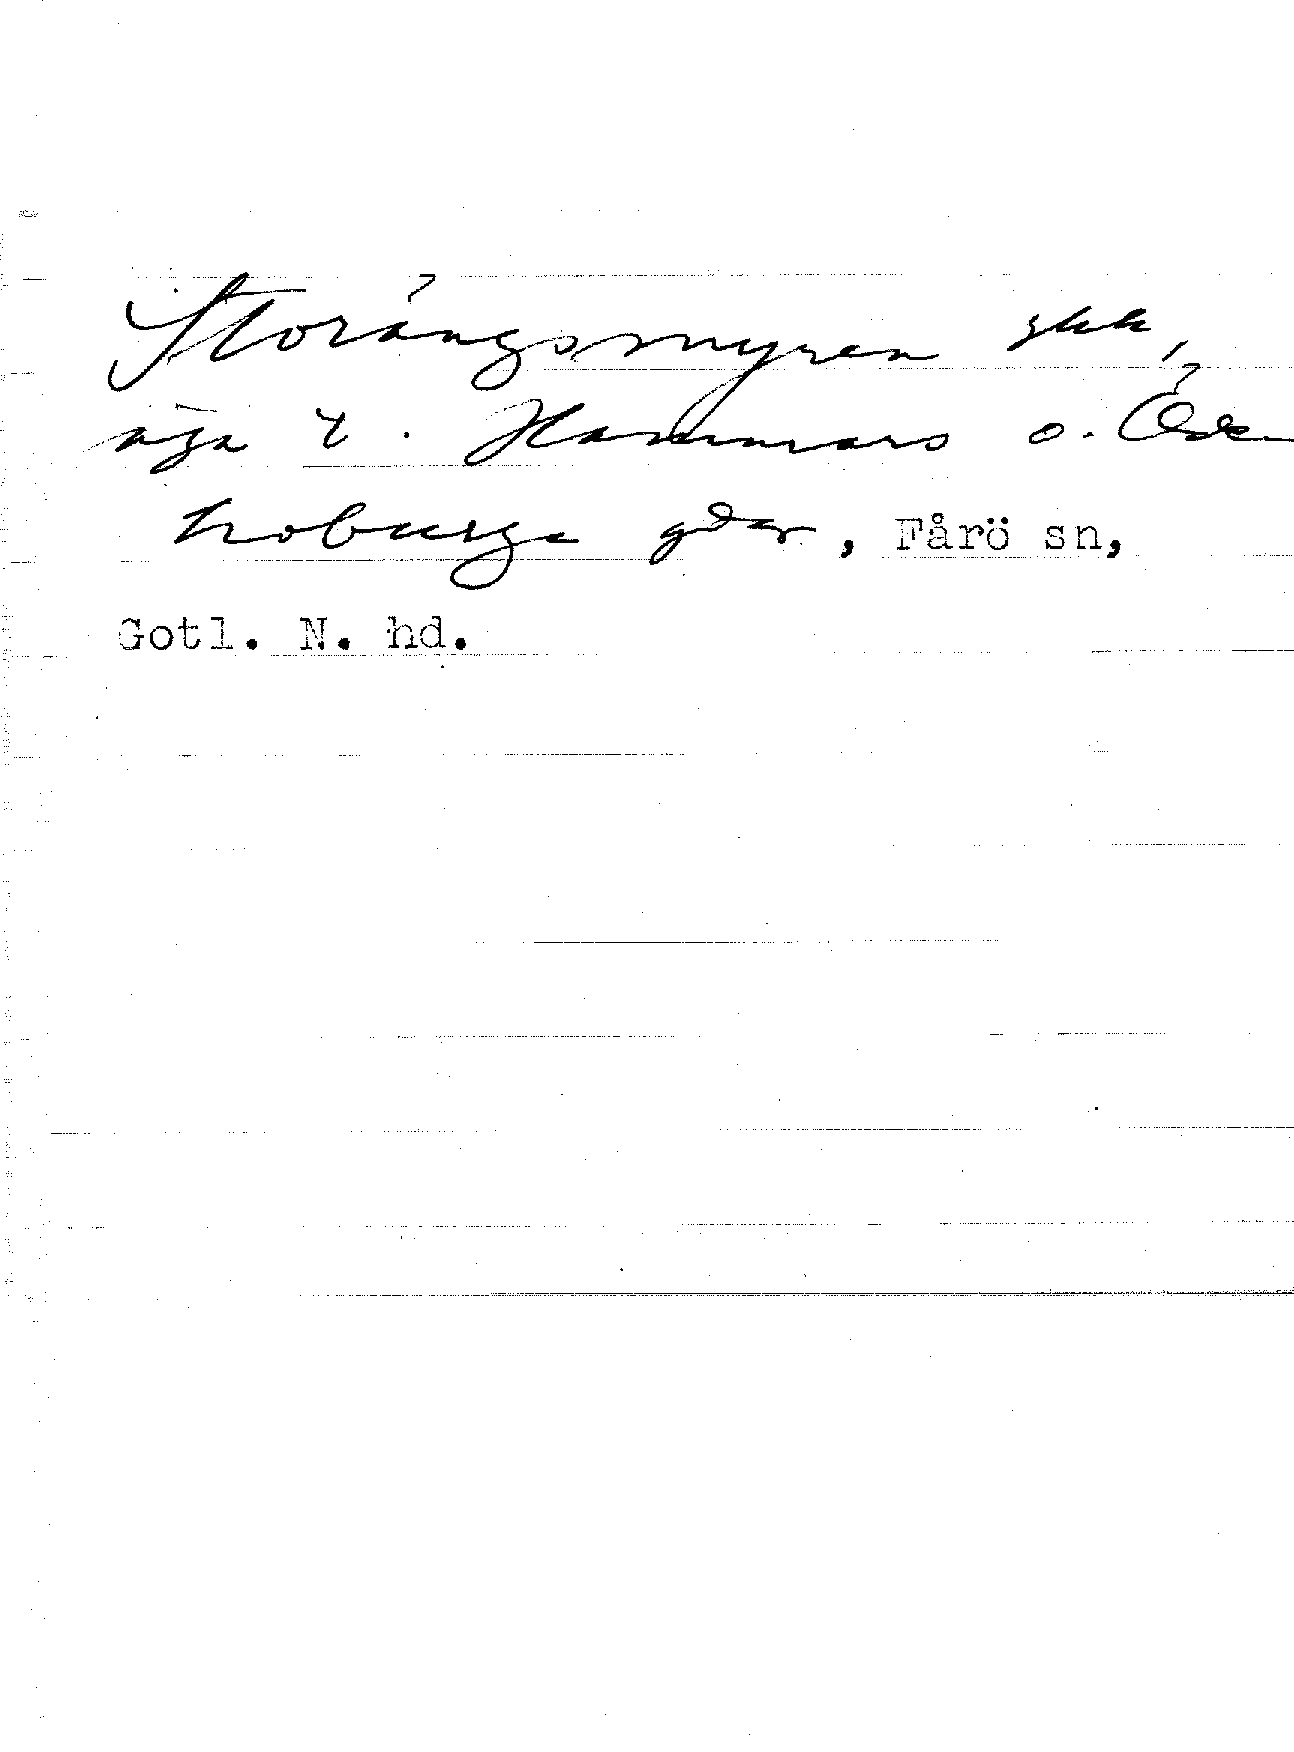 Storängsmyren skk,
äga t. Hammars o.
hoburga gdar, Fårö sn,
Gotl. N. hd.